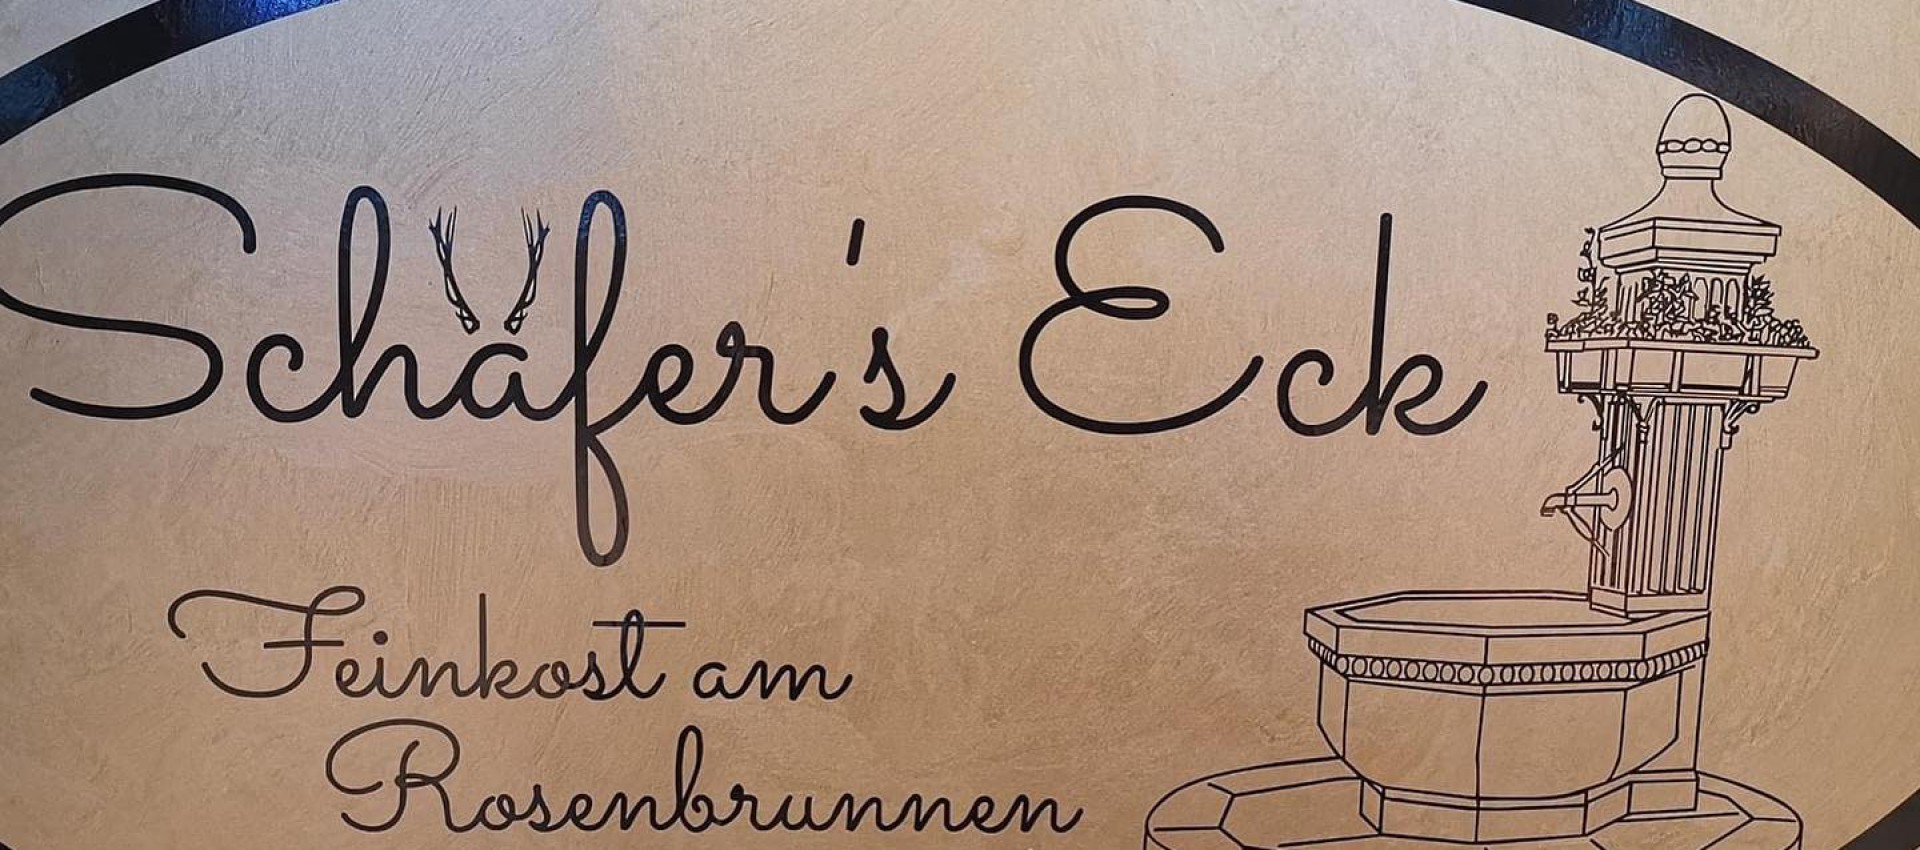 Schäfer's Eck
Feinkost am
Rosenbrunnen